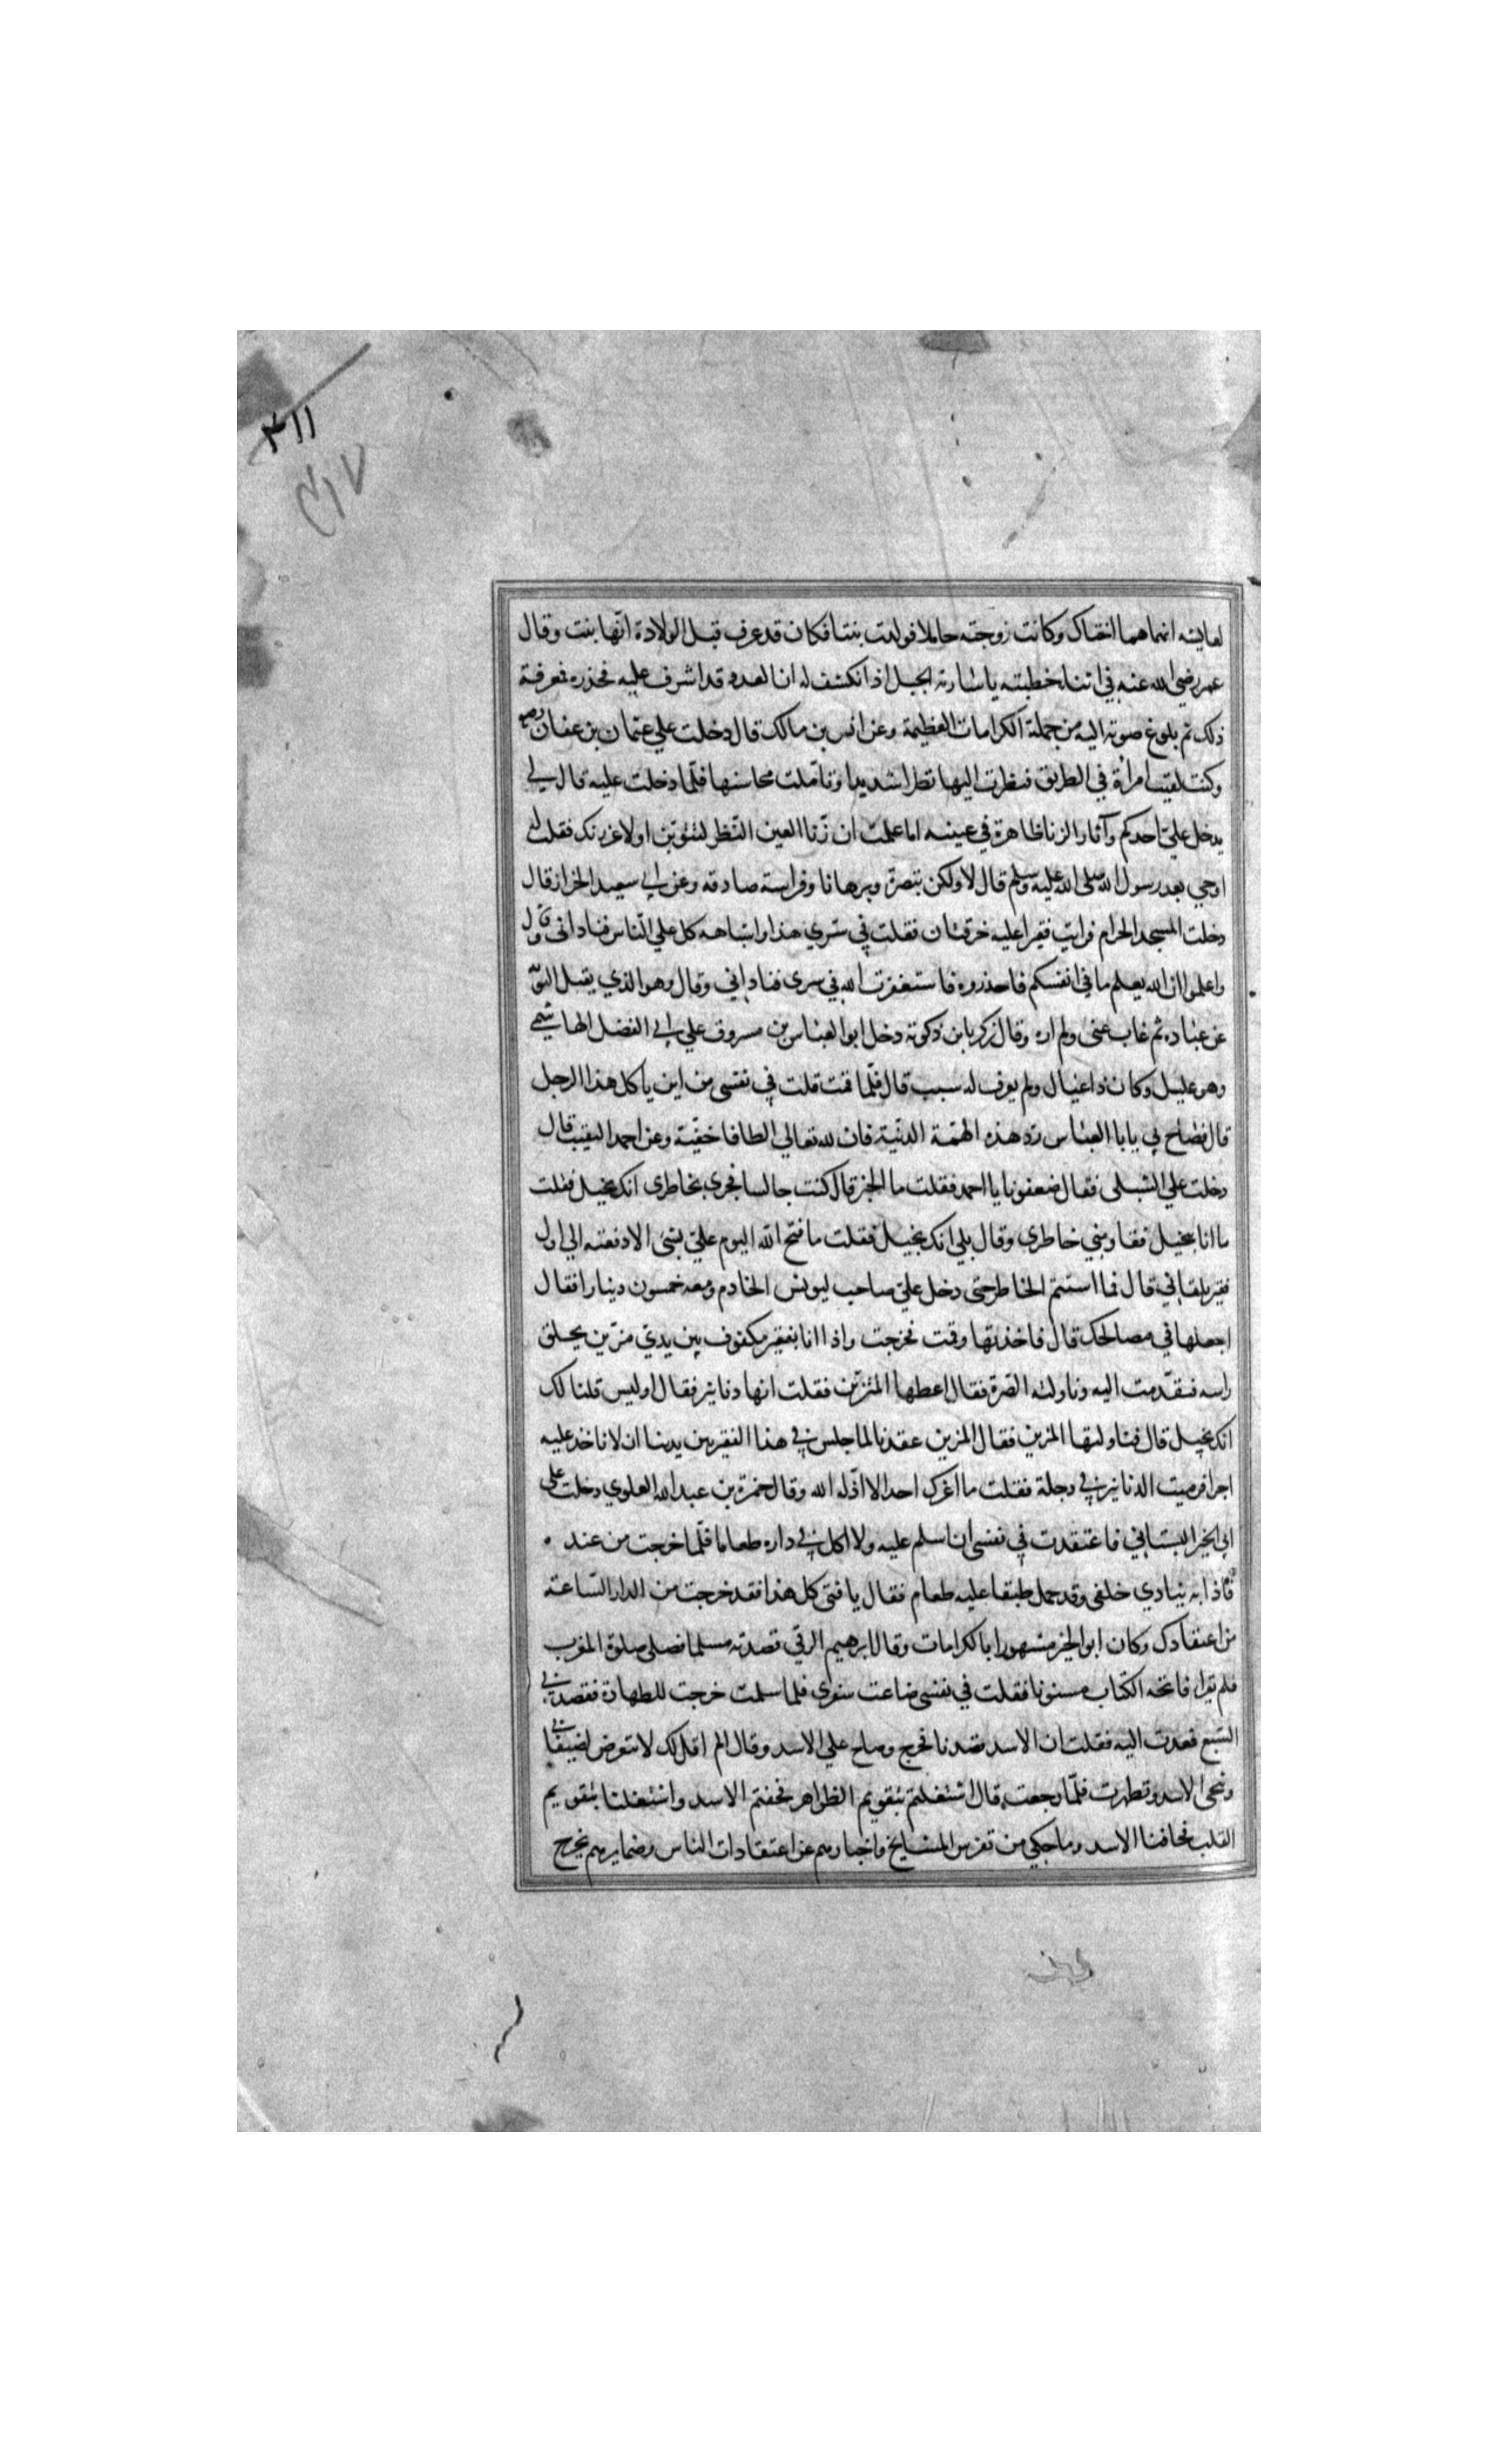 ۴۱۱
۴۱۷
لعايشه انما هما اختاك وكانت زوجته حاملا فولدت بنتا فكان قد عرف قبل الولادة انّها بنت وقال
عمر رضي الله عنه في اثنا خطبته يا سارية الجبل اذ انكشف له ان العدو قد اشرف عليه فحذره لمعرفة
ذلك ثم بلوغ صوته اليه من جملة الكرامات العظيمة وعن انس بن مالك قال دخلت علي عثمان بن عفان رضع
وكنت لقيت امراة في الطريق فنظرت اليها نظرا شديدا وتاملت محاسنها فلمّا دخلت عليه قال لي
يدخل عليّ احدكم وآثار الزنا ظاهرة في عينيه اما علمت ان زنا العين النّظر لتتوبن اولا عزرنك فقلت له
اوحي بعد رسول الله صلى الله عليه وسلم قال لا ولكن تبصرة وبرهانا وفراسة صادقه وعن ابي سعيد الخراز قال
دخلت المسجد الحرام فرايت فقيرا عليه خرقتان فقلت في سّري هذا واشباهه كل علي النّاس فنادانى وقال
واعلموا ان الله يعلم ما في انفسكم فاحذروه فاستغفرت الله في سرى فناداني وقال وهو الذي يقبل التوبّه
عن عباده ثم غاب عنى ولم اره وقال زكريا بن دكوته دخل ابو العباس بن مسروق علي ابي الفضل الهاشمي
وهو عليل وكان ذا عيال ولم يعرف له سبب قال فلمّا قمت قلت في نفسى من اين ياكل هذا الرجل
قال فصاح بي يابا العباس رّد هذه الهمّة الدنيّة فان لله تعالي الطافا خفيّة وعن احمد النقيب قال
دخلت علي الشبلى فقال ضعفونا يا احمد فقلت ما الخبر قال كنت جالسا فجرى بخاطرى انك بخيل فقلت
ما انا بخيل فقاومني خاطرى وقال بلي انك بخيل فقلت ما فتح الله اليوم عليّ بشئ الا دفعته الي اول
فقير يلقاني قال فما استتم الخاطر حتى دخل عليّ صاحب ليونس الخادم ومعه خمسون دينارا فقال
اجعلها في مصالحك قال فاخذتها وقمت فخرجت واذا انا بفقير مكفوف بين يديّ مزّين يحلق
راسه فتقدّمت اليه وناولته الصّرة فقال اعطها المزّين فقلت انها دنانير فقال اوليس قلنا لك
انك بخيل قال فناولتها المزين فقال المزين عقدنا لما جلس في هذا الفقير بين يدينا ان لا ناخذ عليه
اجرا فرميت الدنانير في دجلة فقلت ما اعزك احد الا اذّله الله وقال حمزة بن عبد الله العلوي دخلت علي
ابي الخير التيناني فاعتقدت في نفسى ان اسلم عليه ولا اكل في داره طعاما فلمّا خرجت من عنده
فاذا به ينادي خلفى وقد حمل طبقا عليه طعام فقال يا فتى كل هذا فقد خرجت من الدار السّاعة
من اعتقادك وكان ابو الخير مشهورا بالكرامات وقال ابرهيم الرقي قصدته مسلما فصلى صلوة المغرب
فلم تقرا فاتحه الكتاب مستويا فقلت في نفسى ضاعت سفرى فلما سلمت خرجت للطهارة فقصدني
السبع فعدت اليه فقلت ان الاسد قصدنا فخرج وصاح علي الاسد وقال الم اقل لك لا تتعرض لضيفاني
وتنحى الاسد وتطهرت فلمّا رجعت قال اشتغلتم بتقويم الظواهر فخفتم الاسد واشتغلنا بتقويم
القلب فخافنا الاسد وما حكي من تفرس المشايخ واخبارهم عن اعتقادات الناس وضمايرهم يخرج